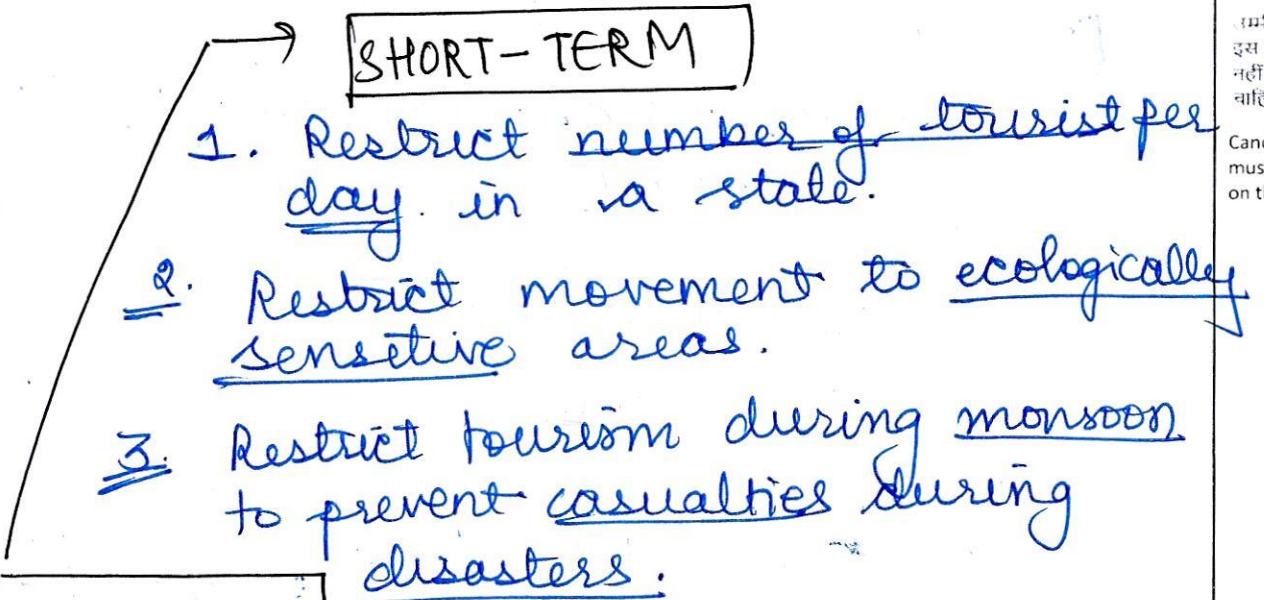 SHORT-TERM
1. Restrict number of tourist per
day. in a state.
2. Restrict movement to ecologically
sensitive areas.
3. Restrict tourism during monsoon
to prevent casualties during
disasters.
इस
नहीं
must
on